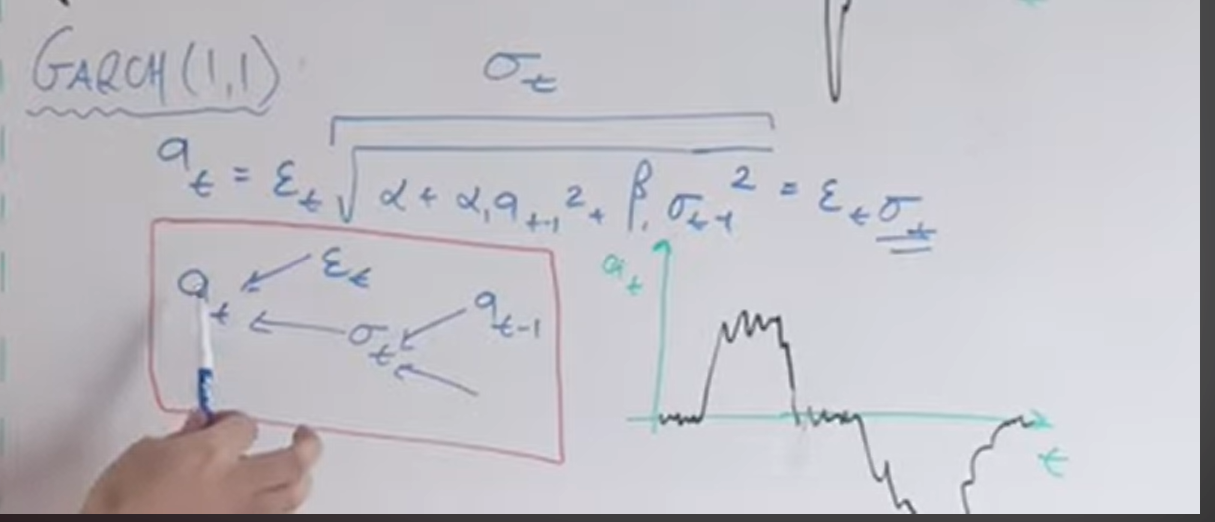 GARCH(1,1)
σₜ
aₜ = εₜ √(α + α₁aₜ₋₁² + β₁σₜ₋₁²) = εₜσₜ
aₜ
εₜ
σₜ
aₜ₋₁
aₜ
t